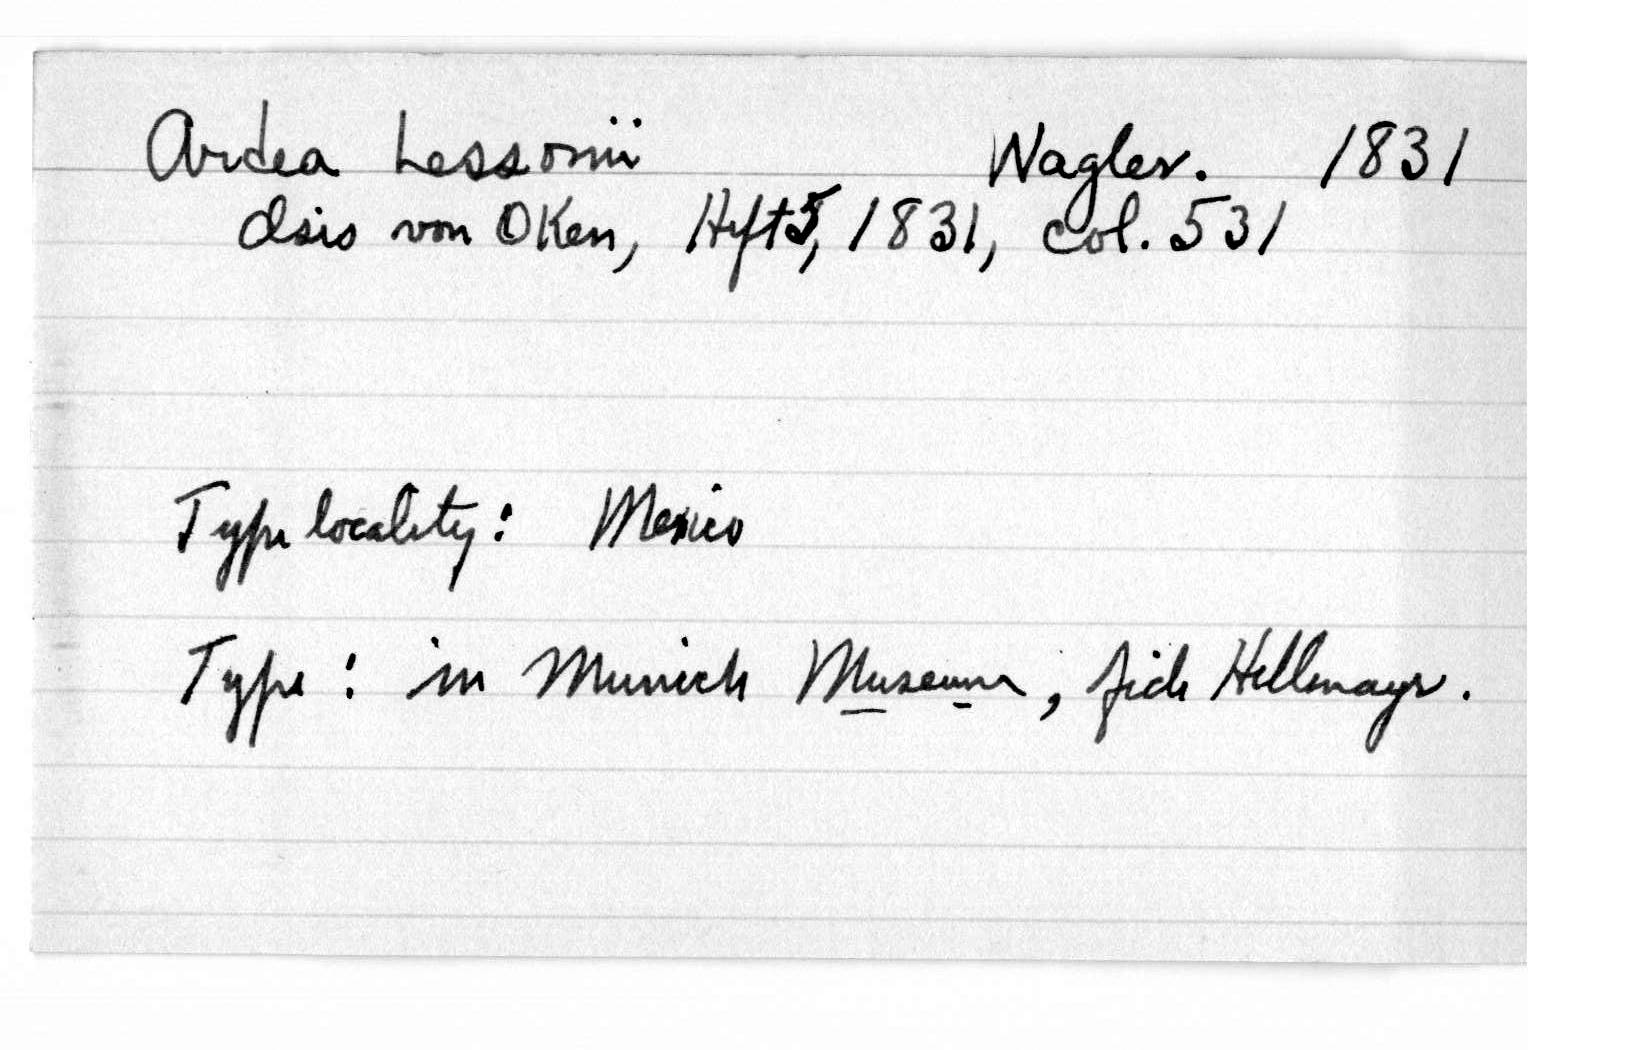 Ardea Lessonii Wagler. 1831
Isis von Oken, Heft 5, 1831, col. 531
Type locality: Mexico
Type: in Munich Museum, fide Hellmayr.